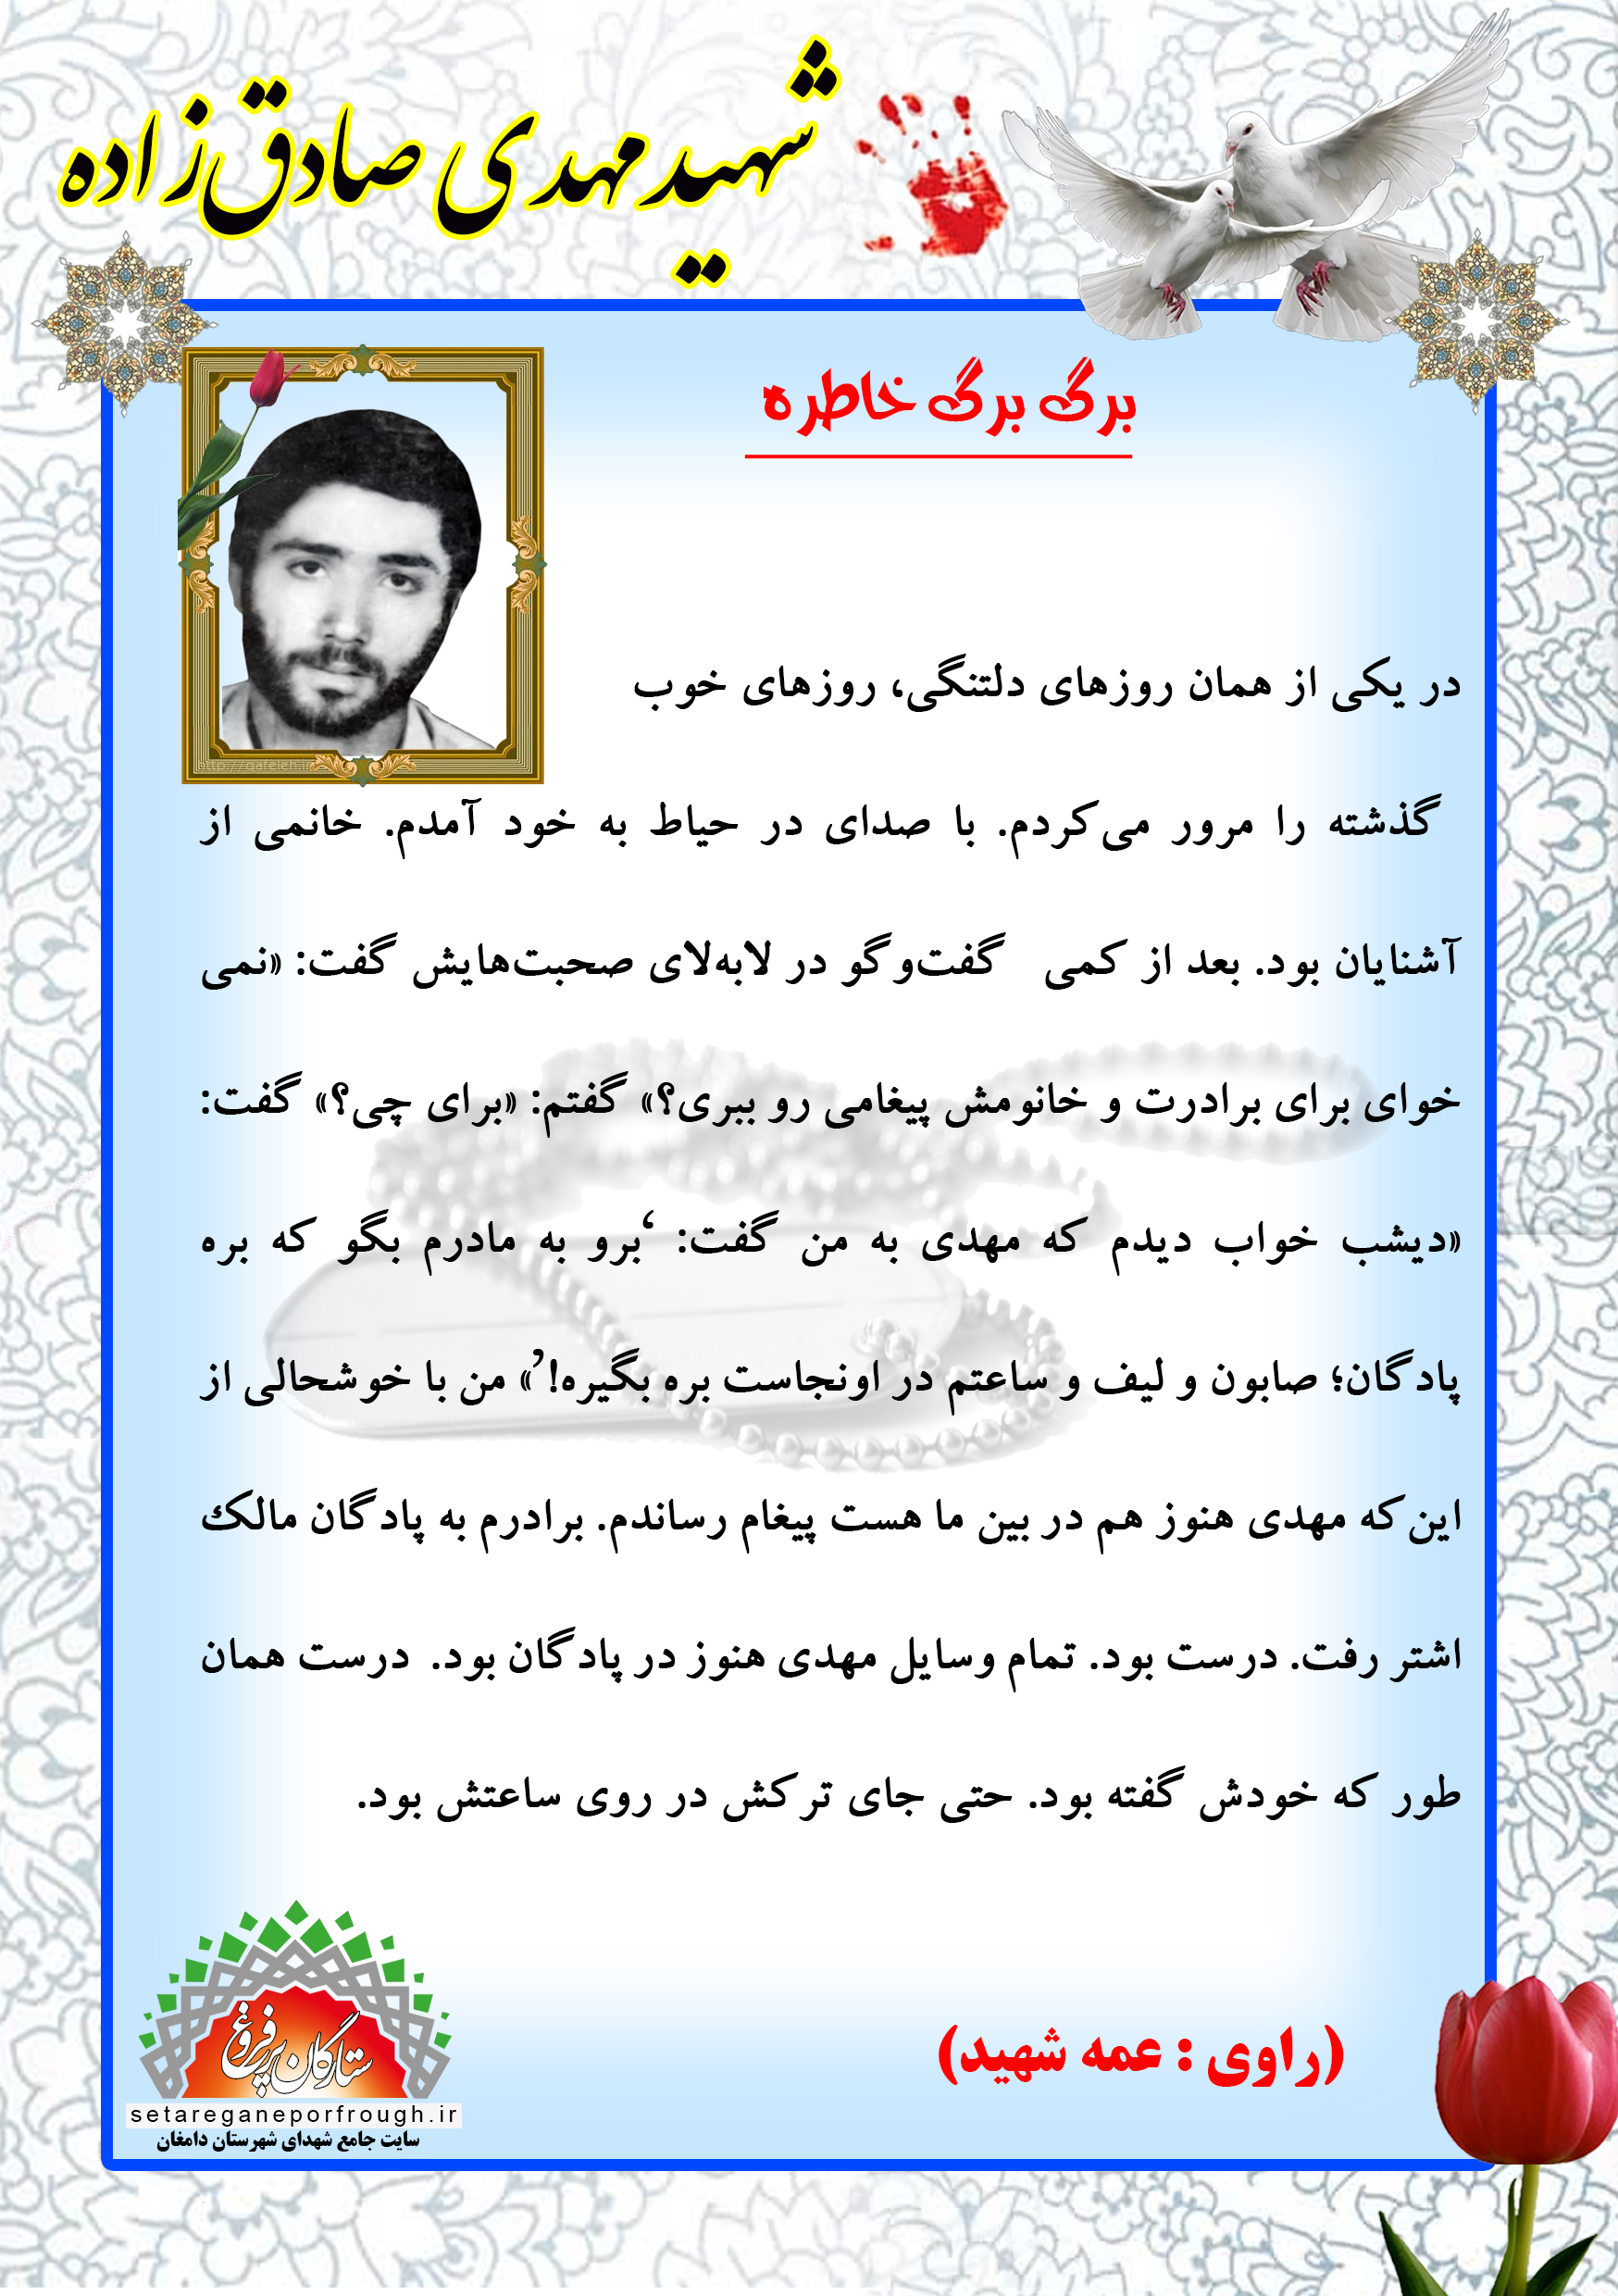 شهید مهدی صادق‌زاده
برگ برگ خاطره
http://qafeleh.ir
در یکی از همان روزهای دلتنگی، روزهای خوب
گذشته را مرور می‌کردم. با صدای در حیاط به خود آمدم. خانمی از
آشنایان بود. بعد از کمی گفت‌وگو در لابه‌لای صحبت‌هایش گفت: «نمی
خوای برای برادرت و خانومش پیغامی رو ببری؟» گفتم: «برای چی؟» گفت:
«دیشب خواب دیدم که مهدی به من گفت: ‘برو به مادرم بگو که بره
پادگان؛ صابون و لیف و ساعتم در اونجاست بره بگیره!’» من با خوشحالی از
این‌که مهدی هنوز هم در بین ما هست پیغام رساندم. برادرم به پادگان مالک
اشتر رفت. درست بود. تمام وسایل مهدی هنوز در پادگان بود. درست همان
طور که خودش گفته بود. حتی جای ترکش در روی ساعتش بود.
(راوی : عمه شهید)
ستارگان پرفروغ
setareganeporfrough.ir
سایت جامع شهدای شهرستان دامغان